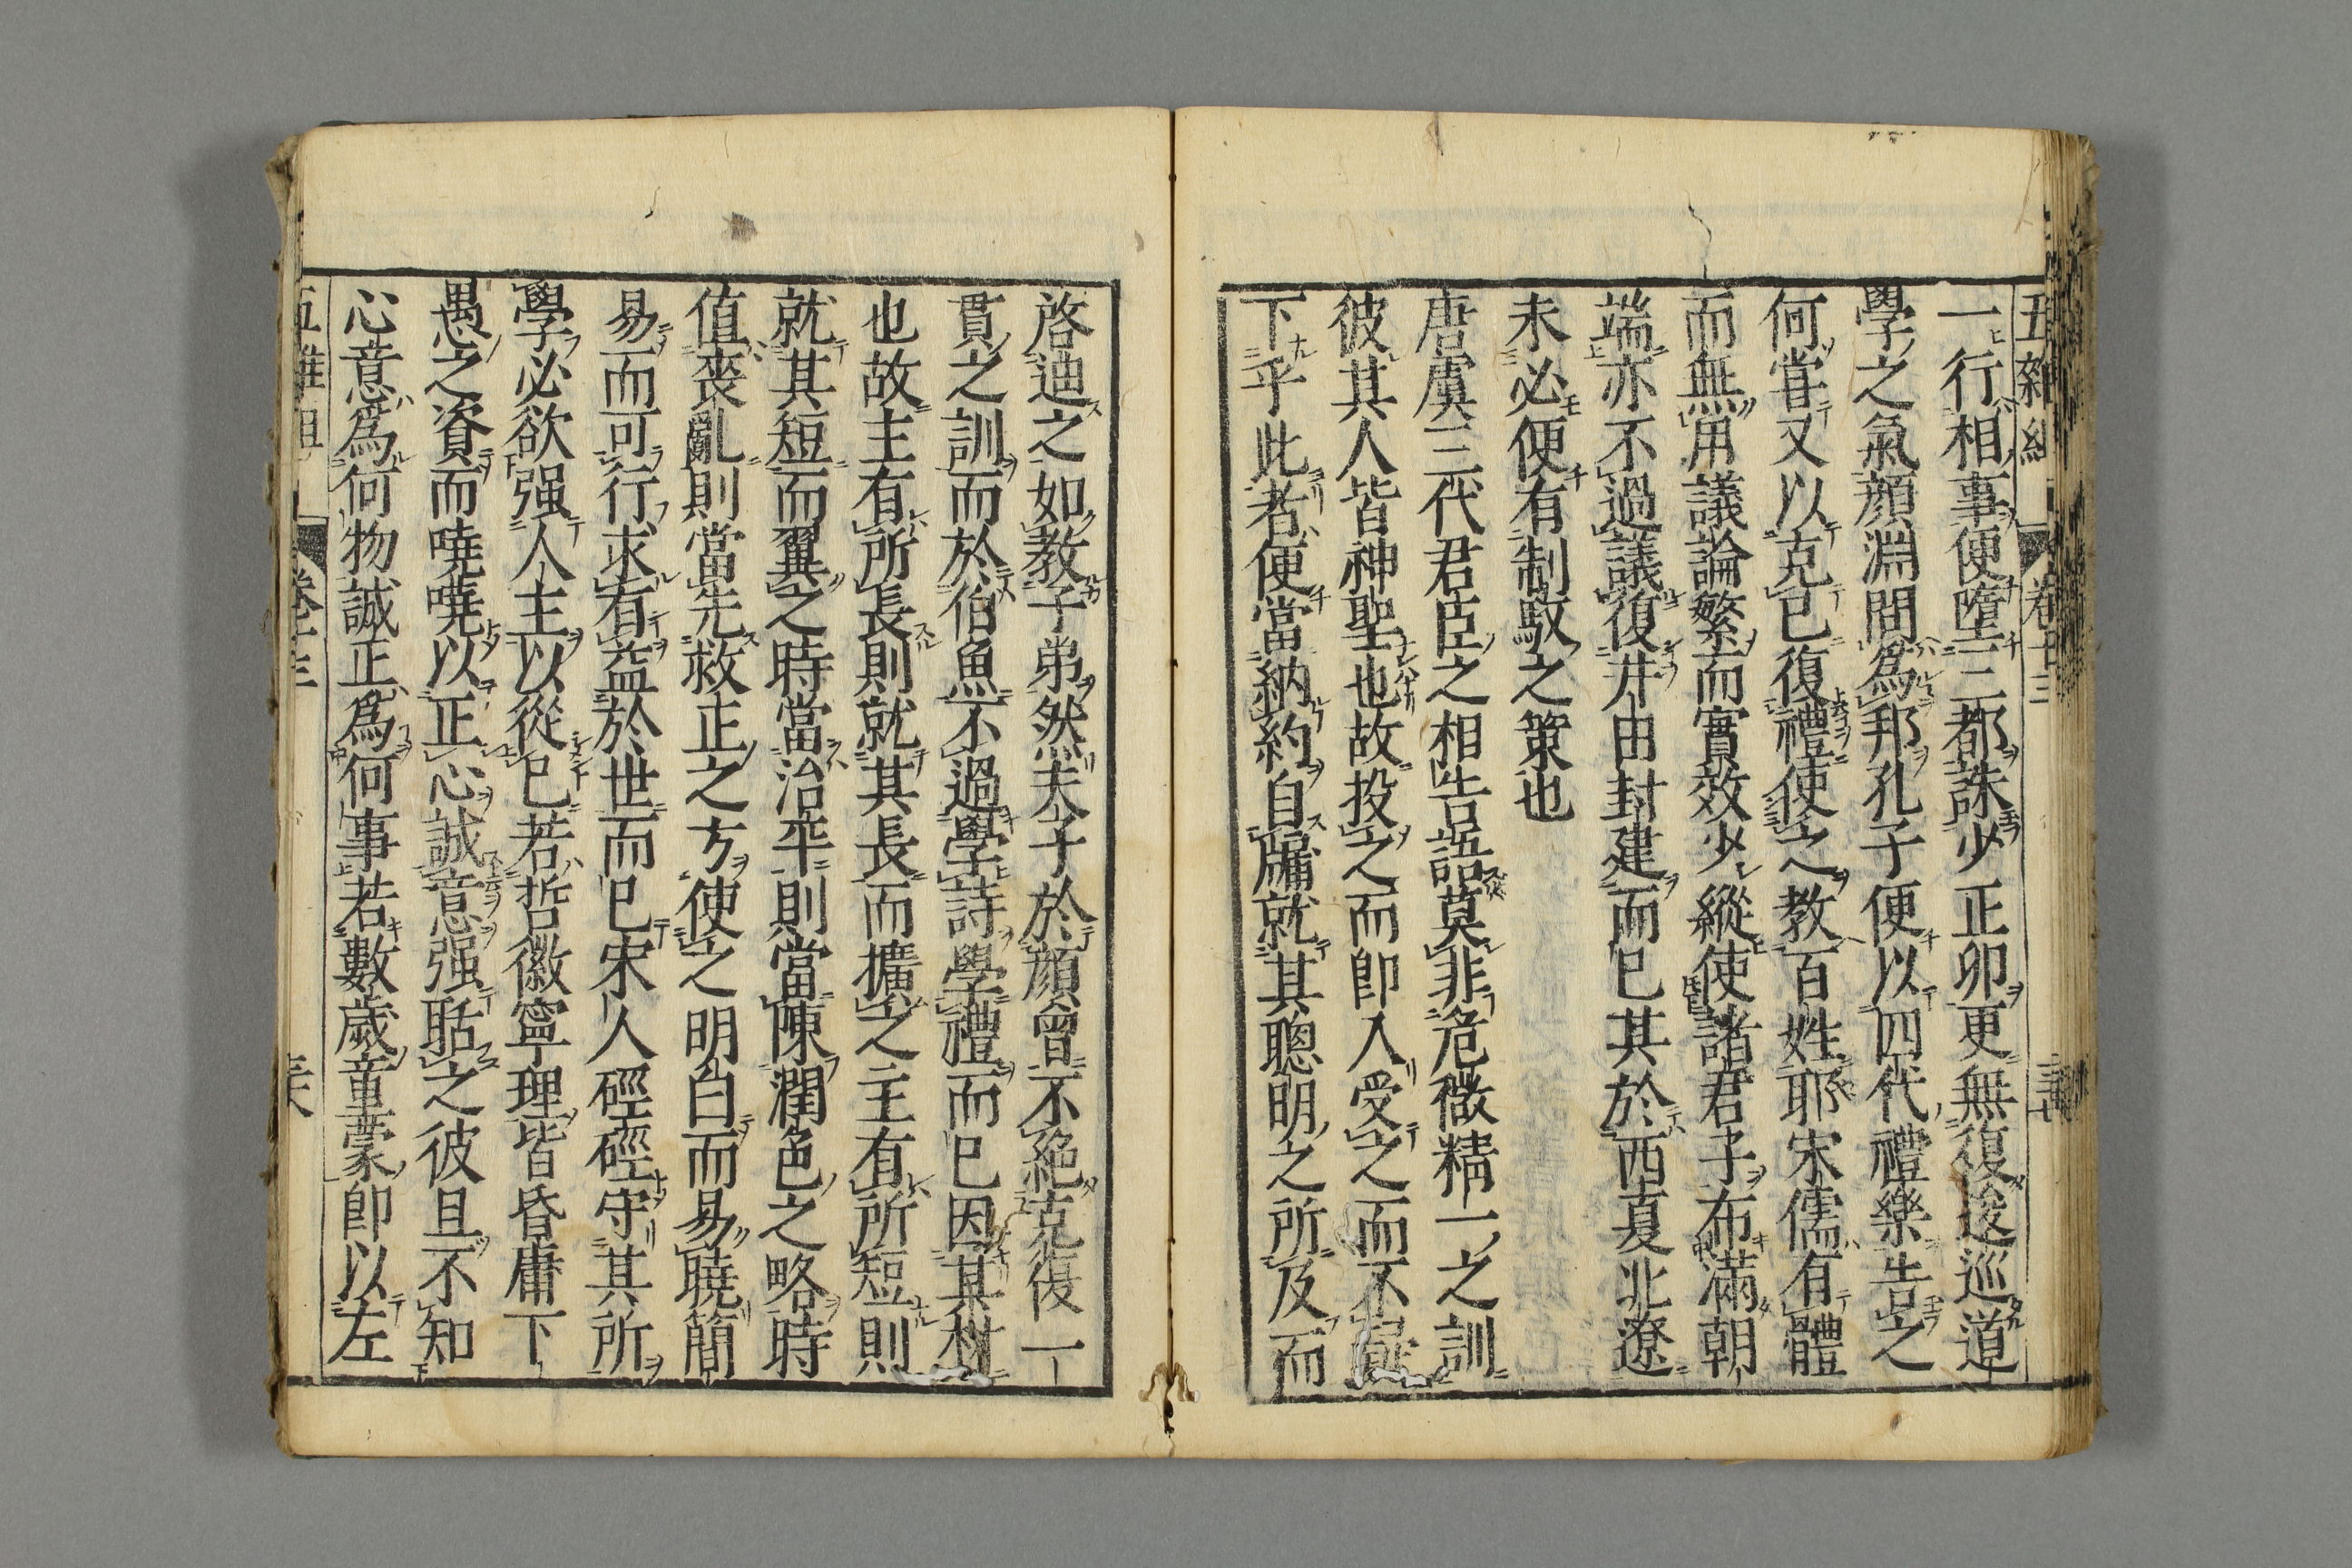 五雜組 卷十三
一行相事便墮三都誅少正卯更無復逡巡道
學之氣顔淵問爲邦孔子便以四代禮樂告之
何甞又以克已復禮使之教百姓耶宋儒有體
而無用議論繁而實效少縱使諸君子布滿朝
端亦不過議復井田封建而已其於西夏北遼
未必便有制馭之策也
唐虞三代君臣之相告語莫非危微精一之訓
彼其人皆神聖也故投之而即入受之而不疑
下乎此者便當納約自牖就其聰明之所及而
啓迪之如教子弟然夫子於顔曾不絶克復一
貫之訓而於伯魚不過學詩學禮而已因其材
也故主有所長則就其長而擴之主有所短則
就其短而翼之時當治平則當陳潤色之略時
值喪亂則當先救正之方使之明白而易曉簡
易而可行求有益於世而已宋人硜硜守其所
學必欲强人主以從已若哲徽寧理皆昏庸下
愚之資而嘵嘵以正心誠意强聒之彼且不知
心意爲何物誠正爲何事若數歲童蒙即以左
五雜組 卷十三